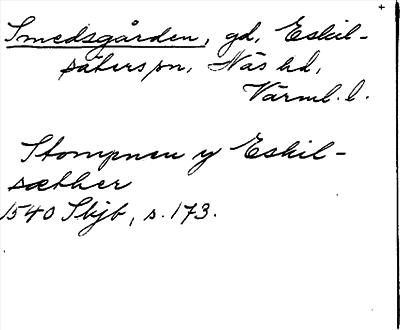 Smedsgården, gd, Eskil-
säters sn, Näs hd,
Värml. l.
Stompnen y Eskil-
sæther
1540 Skjb, s. 173.